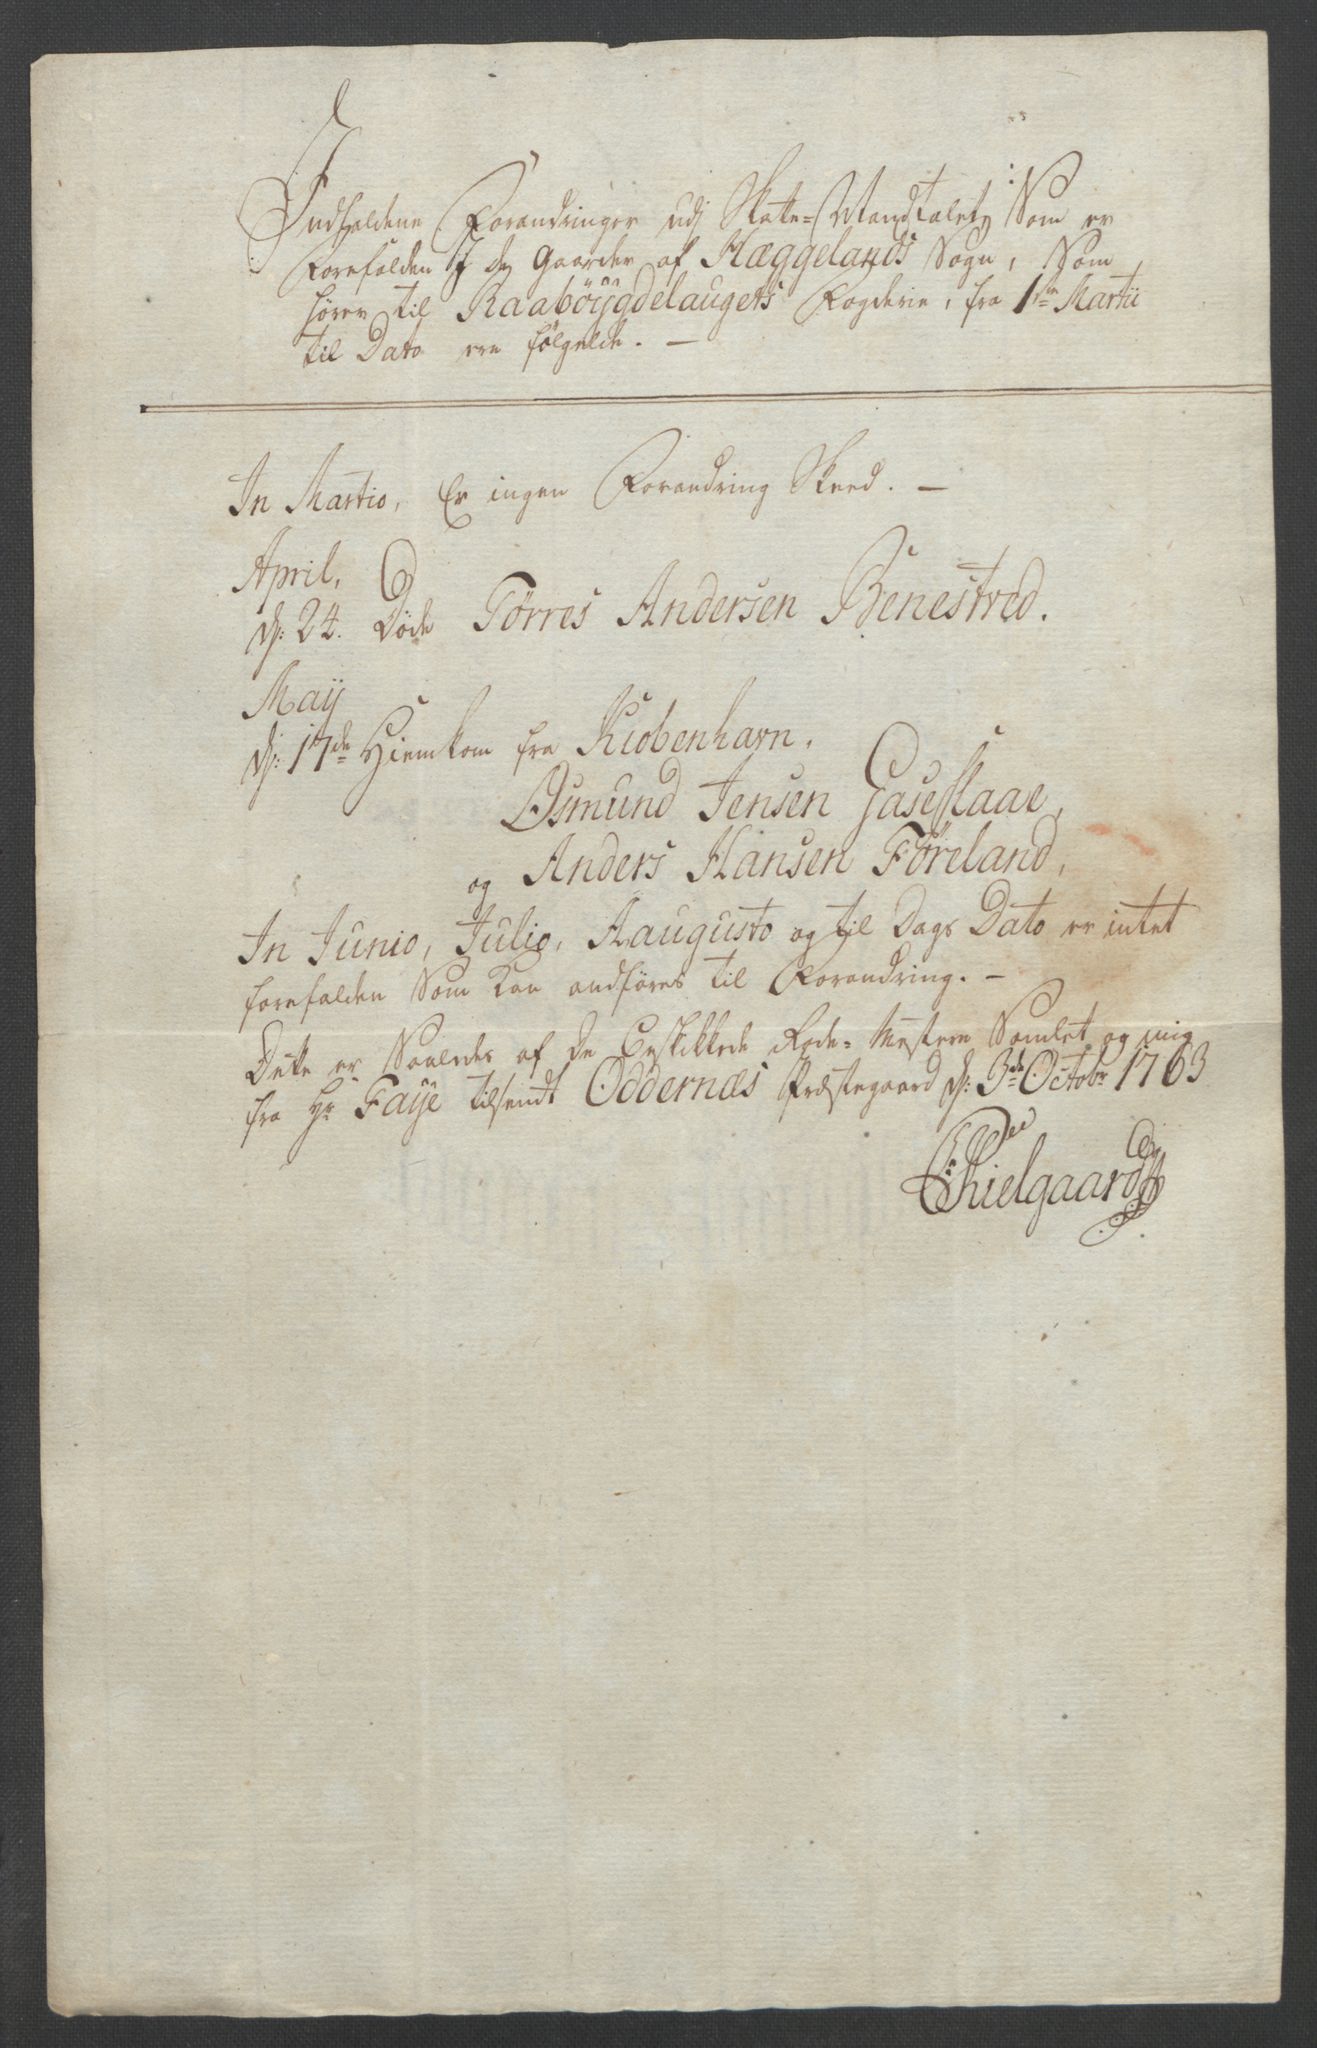 Indholdene Forandringer udj Skatte-Mandtalet, Som er
Forefalden I de Gaarder af Hæggelands Sogn, Som
hører til Raabøÿgdelaugets Fogderie, fra 1ste Martii
til Dato ere følgelde. —
In Martio, Er ingen Forandring Skeed. —
April,
d: 24. Døde Tørres Andersen Benestved.
Maÿ
d: 17de Hiemkom fra Kiobenhavn,
Osmund Jensen Gaseflaae,
og Anders Hansen Føreland,
In Junio, Julio, Aaugusto og til Dags Dato er intet
forefalden Som kan andføres til Forandring. —
Dette er Saaledes af de Beskikkede Rode-Mestere Samlet og mig
fra Hr Faÿe tilsendt Oddernæs Præstegaard d: 3de Octobr 1763
Thielgaard